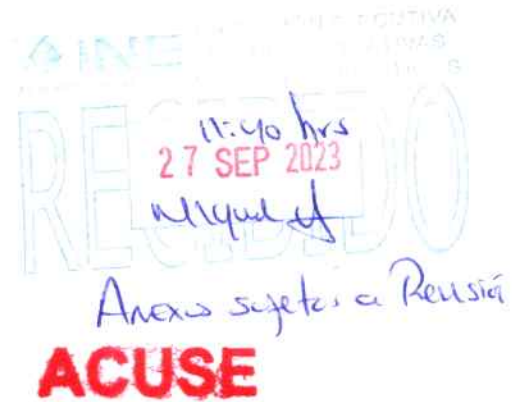 INE
RECIBIDO
11:40 hrs
27 SEP 2023
Miguel A
Anexos sujetos a Revisión
ACUSE